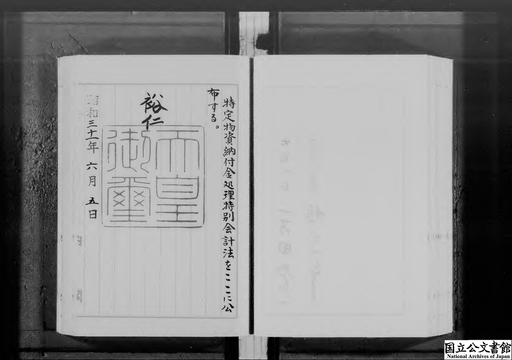 特定物資納付金処理特別会計法をここに公
布する。
裕仁
天皇
御璽
昭和三十一年六月五日
国立公文書館
National Archives of Japan